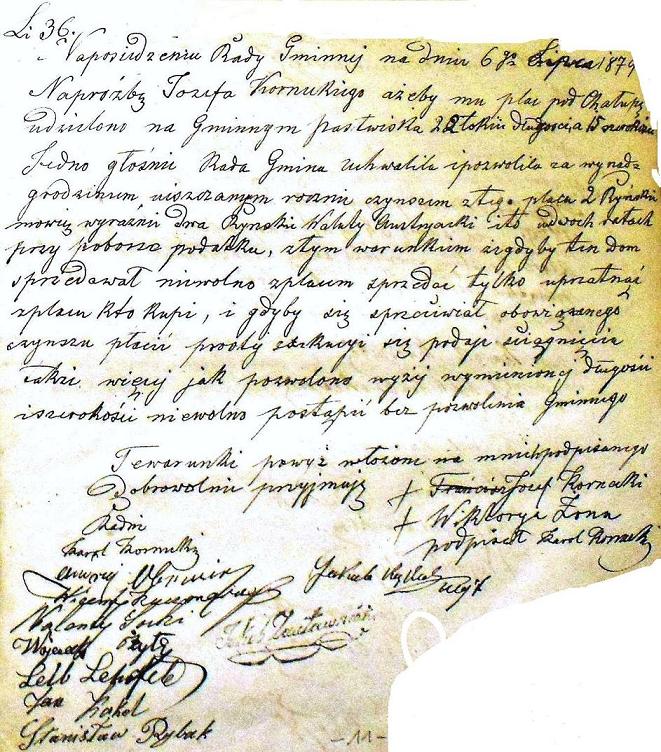 Li 36.
Naposiedzeniu Rady Gminnej na dniu 6 go Lipca 1879
Naprożbę Jozefa Kornickiego ażeby mu plac pod Chałupę
udzielono na Gminnym Pastwisku 22 łokin długości a 15 szerokim
Jedno głośnie Rada Gmina uchwaliła i pozwoliła za wynad-
grodzinim, uiszczanym roczni czynszem z tigo placu 2 Ryński
mowię wyrazni dwa Ryński Waluty Austryacki ito udwoch ratach
przy poborze podatku, ztym warunkim iżgdyby ten dom
sprzedawał niewolno zplacim sprzedać tylko uprzatnąć
zplacu kto kupi, i gdyby się sprzeciwiał obowiązanego
czynszu płacić prosty się podaji sciągnięcia
także więcej jak pozwolono wyżij wymienionej długości
iszerokości niewolno postąpić bez pozwolinia Gminnego
Tewarunki powyż włożone na mnie podpisanego
Dobrowolni przyjmuję + Jozef Kornicki
Radni + Wiktorya Żona
Karol Kornicki podpisał Karol Kornicki
Jakub
Walenty
Wojciech
Leib
Jan
Stanisław Rybak
-11-